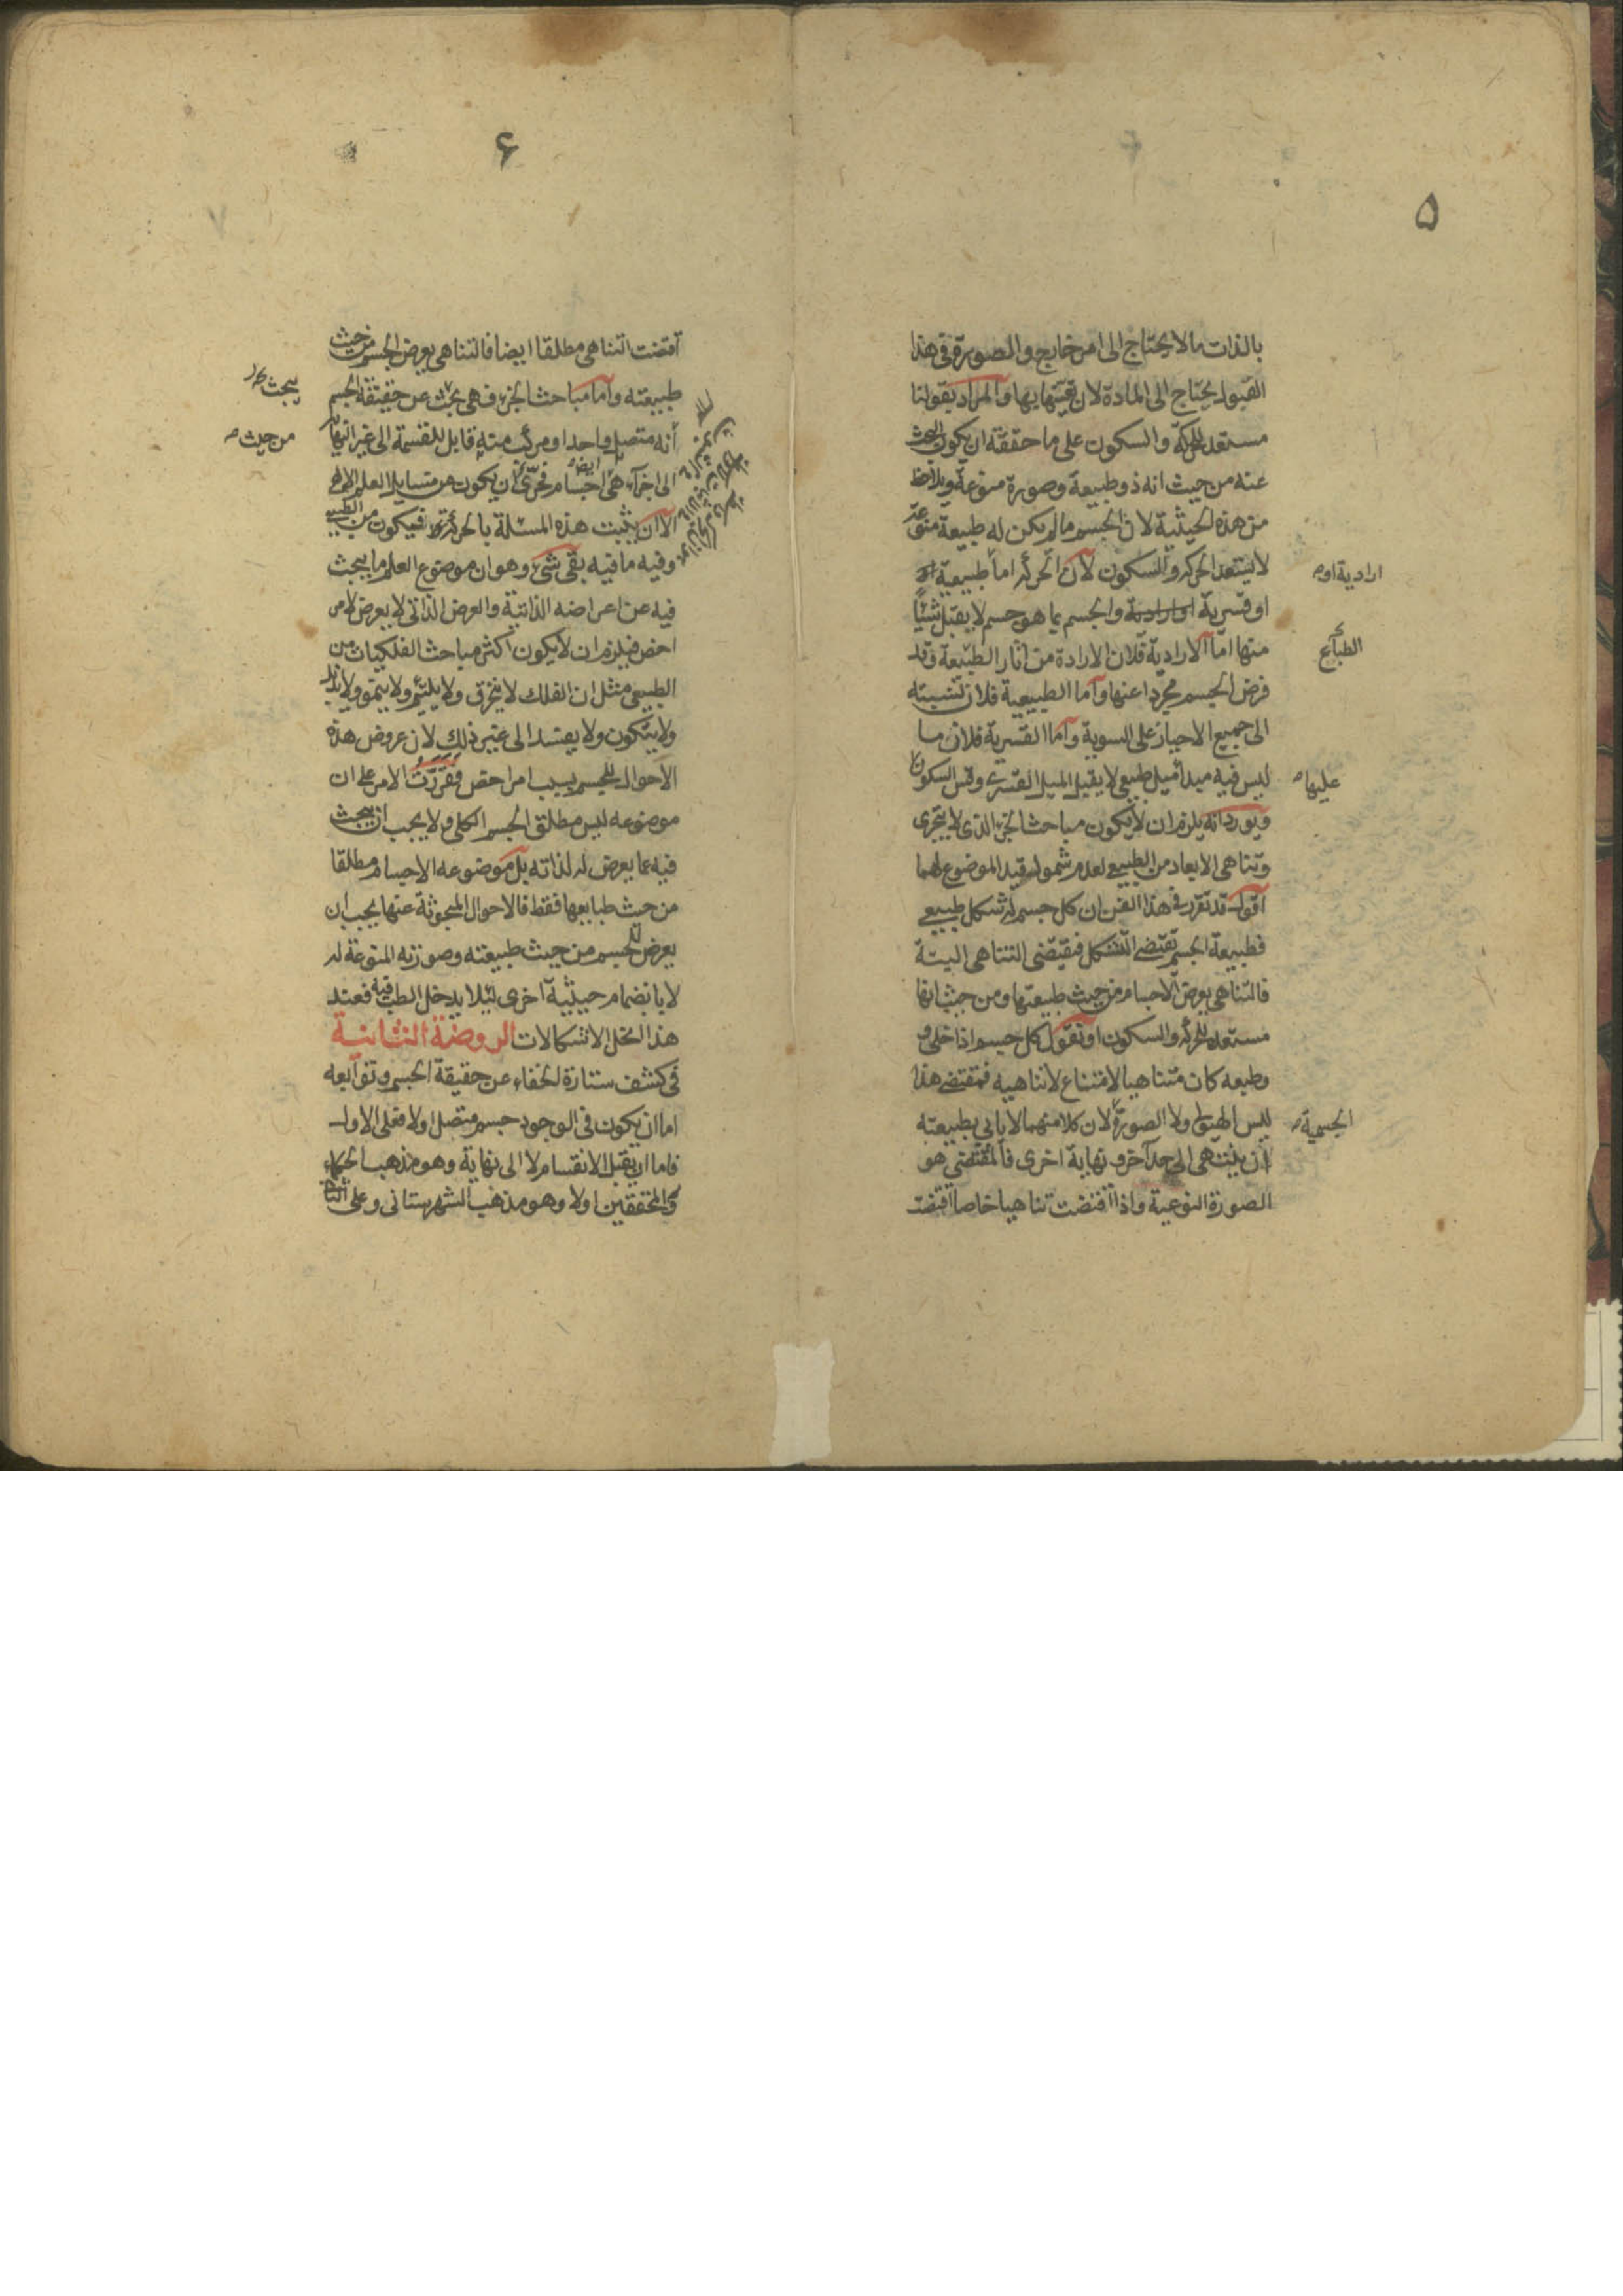 ۵
بالذات ما لا يحتاج الى امر خارج والصورة فى هذا
القبول يحتاج الى المادة لان تعينها بها والمراد بقولنا
مستعد للحركة والسكون على ما حققه ان يكون البحث
عنه من حيث انه ذو طبيعة وصورة منوعة ويلاحظ
من هذه الحيثية لان الجسم ما لم يكن له طبيعة منوعة
لا يستعد الحركة والسكون لان الحركة اما طبيعية
ارادية او
او قسرية والجسم بما هو جسم لا يقبل شيئا
منها اما الارادية فلان الارادة من اثار الطبيعة وقد
الطبايع
فرض الجسم مجردا عنها واما الطبيعية فلان نسبته
الى جميع الاحياز على السوية واما القسرية فلان ما
ليس فيه مبدأ ميل طبيعى لا يقبل الميل القسرى وقس السكون
عليها
ويورد انه يلزم ان لا يكون مباحث الجزء الذى لا يتجزى
وتناهى الابعاد من الطبيعى لعدم شمول قيد الموضوع لهما
اقول قد تقرر فى هذا الفن ان كل جسم له شكل طبيعى
فطبيعة الجسم تقتضى التشكل فيقتضى التناهى البتة
فالتناهى يعرض الاجسام من حيث طبيعتها ومن حيث انها
مستعدة للحركة والسكون او نقول كل جسم اذا خلى و
وطبعه كان متناهيا لامتناع لاتناهيه فمقتضى هذا
ليس الهيولى ولا الصورة لان كلا منهما لا يابى بطبيعته
الجسمية
ان ينتهى الى حد آخر ونهاية اخرى فالمقتضى هو
الصورة النوعية واذا اقتضت تناهيا خاصا اقتضت
۶
اقتضت التناهى مطلقا ايضا فالتناهى يعرض الجسم من حيث
طبيعته واما مباحث الجزء فهى بحث عن حقيقة الجسم
يبحث
انه متصل واحد او مركب منته قابل للقسمة الى غير النهاية
من حيث
الى اجزاء هى اجسام ايضا فحرى ان يكون من مسايل العلم الالهى
الا ان يثبت هذه المسئلة بالحركة فيكون من الطبيعى
وفيه ما فيه بقى شئ وهو ان موضوع العلم ما يبحث
فيه عن اعراضه الذاتية والعرض الذاتى لا يعرض لامر
اخص فيلزم ان لا يكون اكثر مباحث الفلكيات من
الطبيعى مثل ان الفلك لا ينخرق ولا يلتئم ولا ينمو ولا يذبل
ولا يتكون ولا يفسد الى غير ذلك لان عروض هذه
الاحوال للجسم بسبب امر اخص فقررت الامر على ان
موضوعه ليس مطلق الجسم الكلى ولا يجب ان يبحث
فيه عما يعرض له لذاته بل موضوعه الاجسام مطلقا
من حيث طبايعها فقط فالاحوال المبحوثة عنها يجب ان
يعرض للجسم من حيث طبيعته وصورته المنوعة له
لا بانضمام حيثية اخرى لئلا يدخل الطب فيه فعند
هذا انحل الاشكالات الروضة الثانية
فى كشف ستارة الخفاء عن حقيقة الجسم وتوابعه
اما ان يكون فى الوجود جسم متصل اولا فعلى الاول
فاما ان يقبل الانقسام لا الى نهاية وهو مذهب الحكماء
والمحققين اولا وهو مذهب الشهرستانى وعلى الثانى